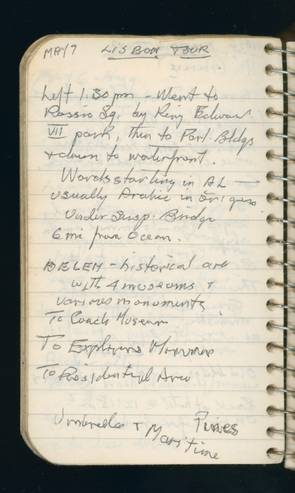 MAY 7 LISBON TOUR
Left 1:30 pm - Went to
Rossio Sq. by King Edward
VII park, then to Parl. Bldgs
+ down to waterfront.
Words starting in AL —
usually Arabic in origin.
Under Susp. Bridge
6 mi from Ocean.
BELEM - historical area
with 4 museums +
various monuments
To Coach Museum
To Explorers Monum
To Residential Area
Umbrella + Maritime Pines